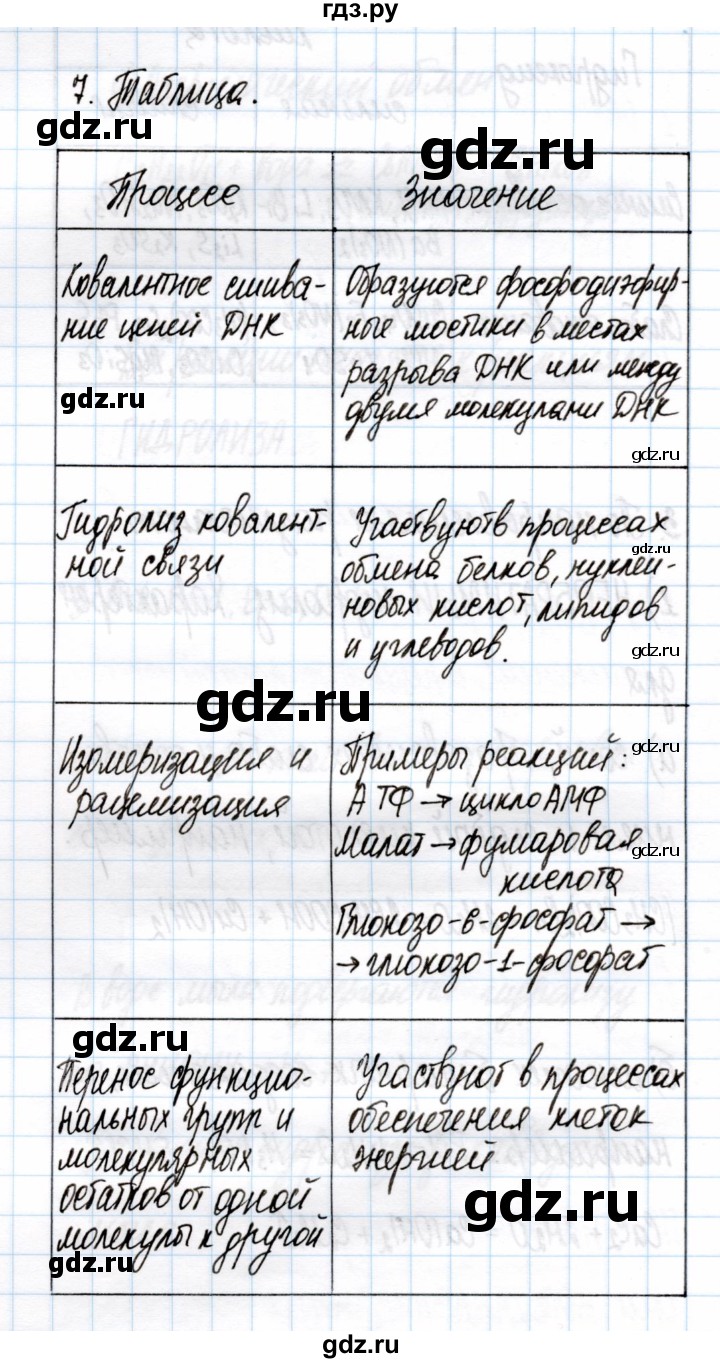 гдз.ру
7. Таблица.
gdz.ru
Процесс
Значение
Ковалентное сшива-
ние цепей ДНК
gdz.ru
Образуются фосфородиэфир-
ные мостики в местах
разрыва ДНК или между
двумя молекулами ДНК
gdz.ru
Гидролиз ковалент-
ной связи
Участвуют в процессах
gdz.ru
обмена белков, нуклеи-
новых кислот, липидов
и углеводов.
gdz.ru
gdz.ru
Изомеризация и
рацемизация
Примеры реакций:
АТФ → циклоАМФ
Малат → фумаровая
gdz.ru
кислота
Глюкозо-6-фосфат →
→ глюкозо-1-фосфат
gdz.ru
Перенос функцио-
нальных групп и
молекулярных
остатков от одной
молекулы к другой
gdz.ru
Участвуют в процессах
обеспечения клеток
энергией
gdz.ru
gdz.ru